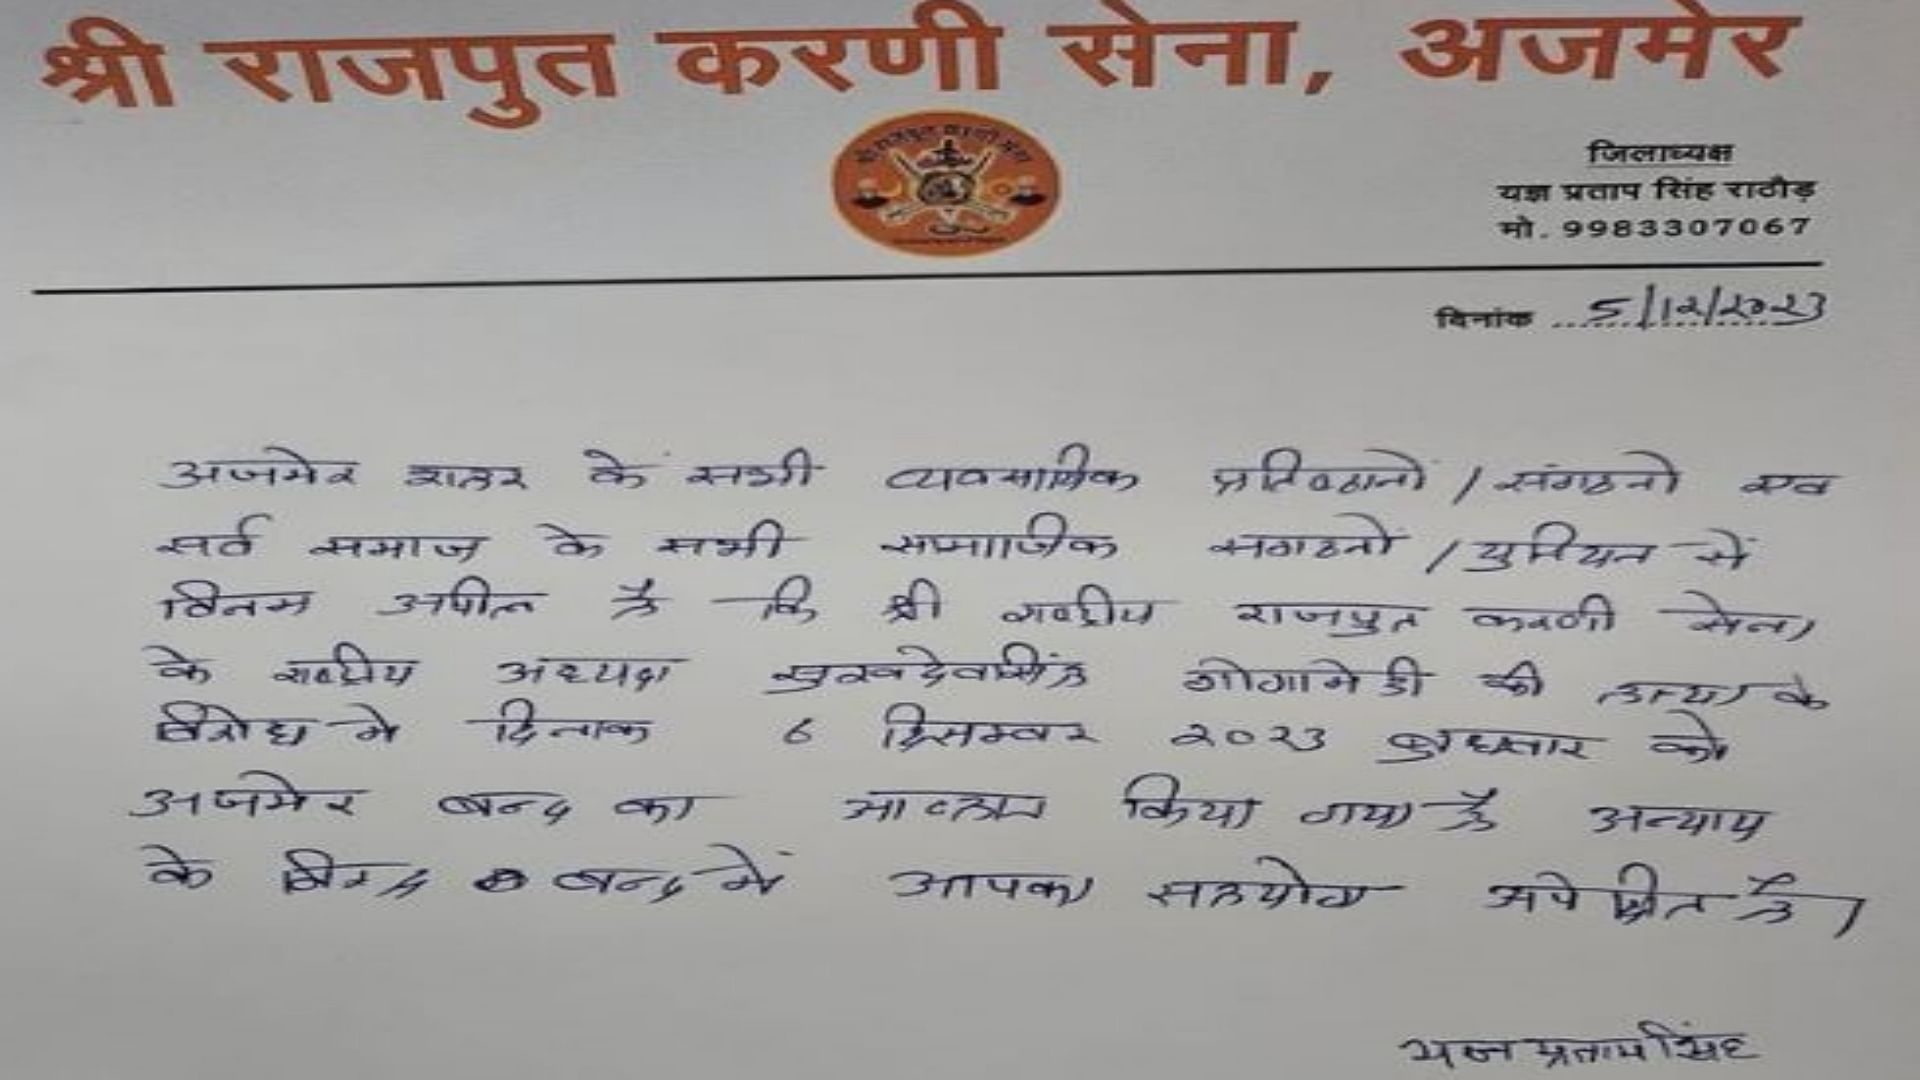 श्री राजपुत करणी सेना, अजमेर
श्री राजपुत करणी सेना
जिलाध्यक्ष
यज्ञ प्रताप सिंह राठौड़
मो. 9983307067
दिनांक 5/12/2023
अजमेर शहर के सभी व्यवसायिक प्रतिष्ठानों / संगठनो एव
सर्व समाज के सभी समाजिक सगठनों / युनियन से
विनम्र अपील है कि श्री राष्ट्रीय राजपुत करणी सेना
के राष्ट्रीय अध्यक्ष सुखदेवसिंह गोगामेडी की हत्या के
विरोध मे दिनाक 6 दिसम्बर 2023 बुधवार को
अजमेर बन्द का आव्हान किया गया है अन्याय
के विरुद्ध बन्द में आपका सहयोग अपेक्षित है।
यज्ञ प्रताप सिंह